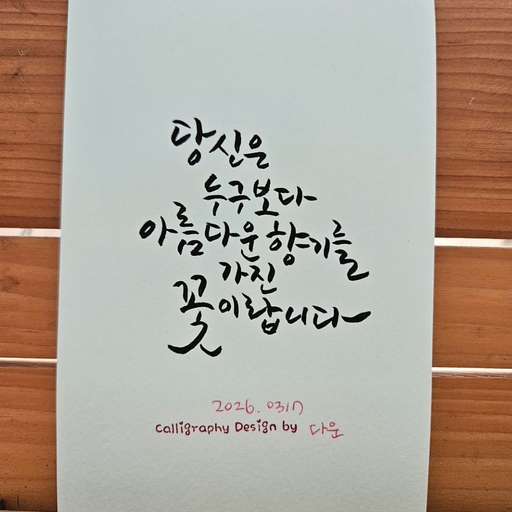 당신은
누구보다
아름다운 향기를
가진
꽃이랍니다
2026. 0317
Calligraphy Design by 다운